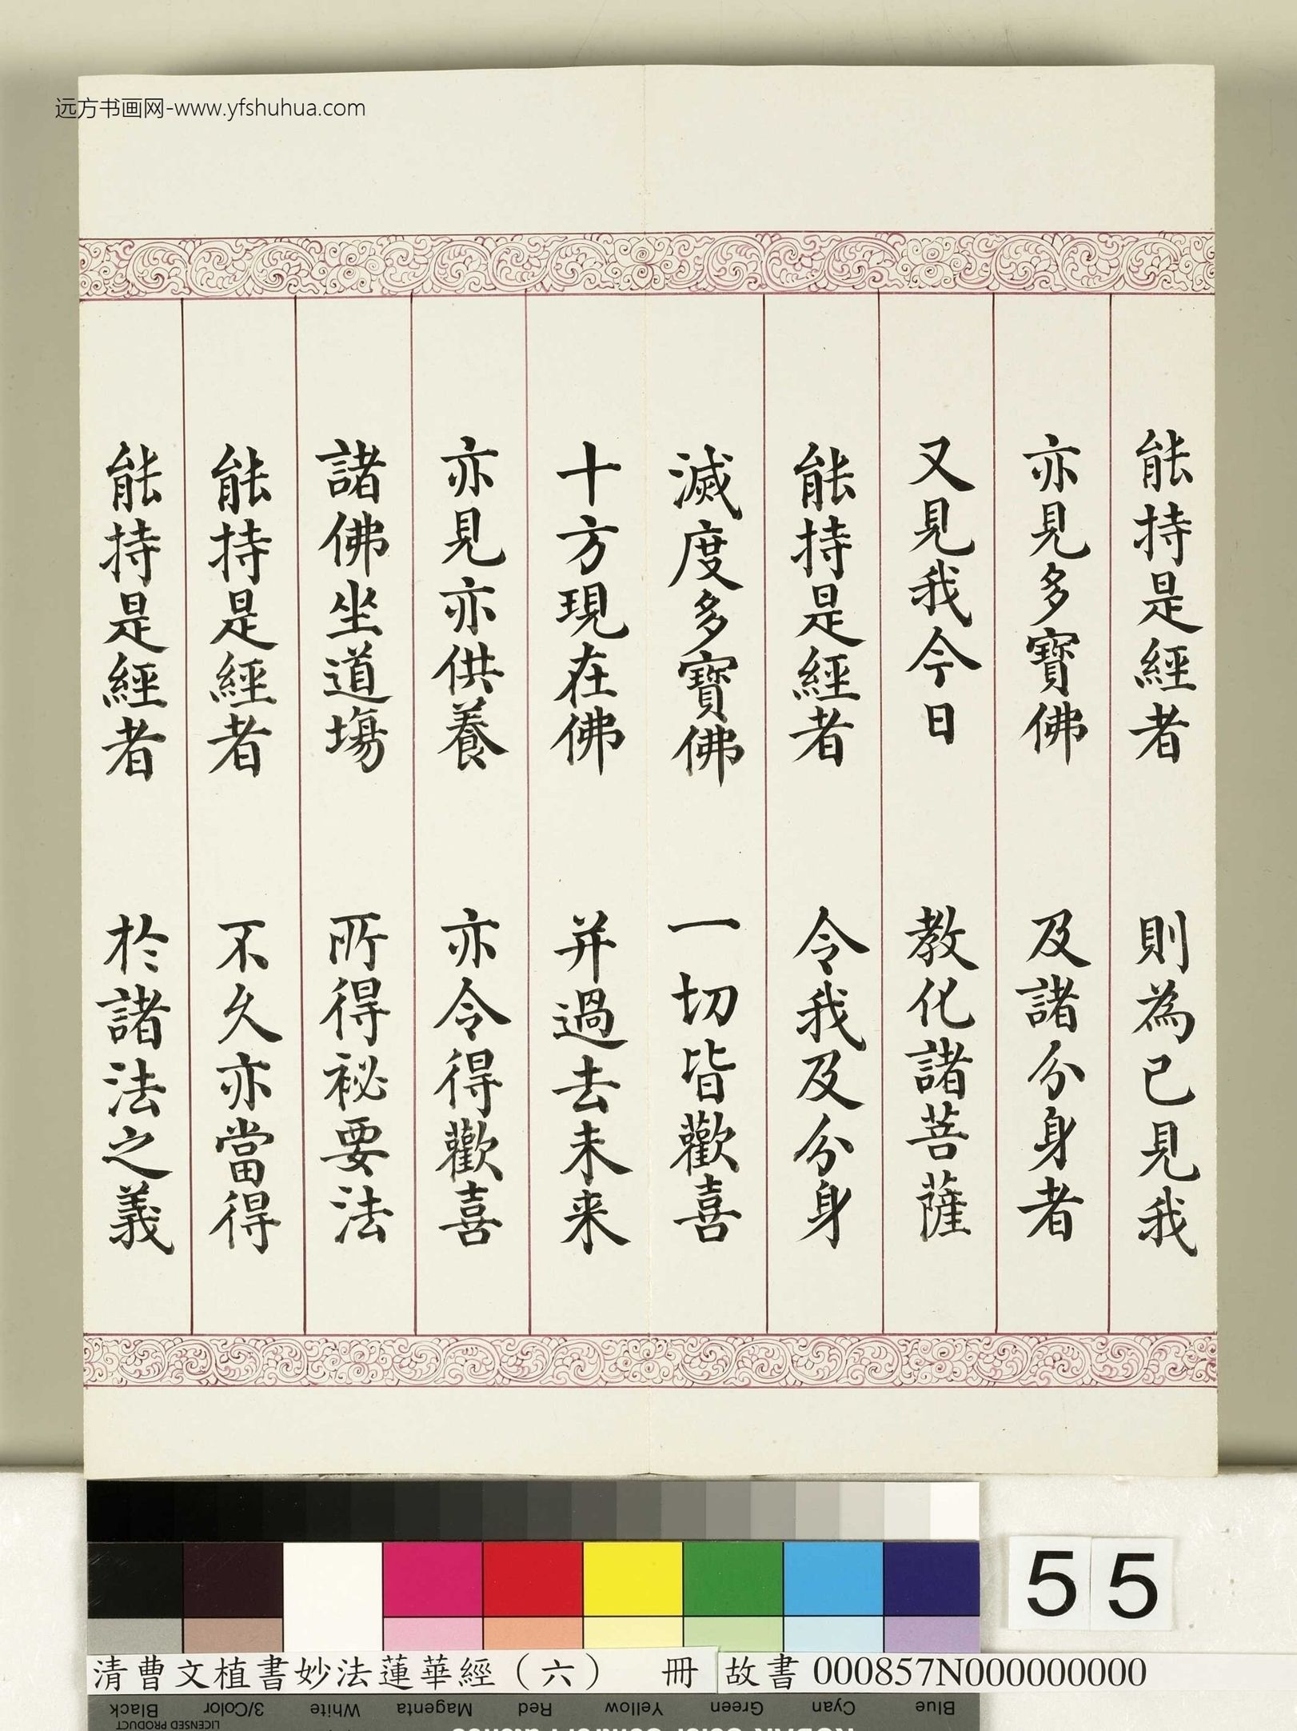 远方书画网-www.yfshuhua.com
能持是經者 則為已見我
亦見多寶佛 及諸分身者
又見我今日 教化諸菩薩
能持是經者 令我及分身
滅度多寶佛 一切皆歡喜
十方現在佛 并過去未来
亦見亦供養 亦令得歡喜
諸佛坐道場 所得祕要法
能持是經者 不久亦當得
能持是經者 於諸法之義
55
清曹文植書妙法蓮華經（六） 冊 故書 000857N000000000
Black 3/Color White Magenta Red Yellow Green Cyan Blue
LICENSED PRODUCT